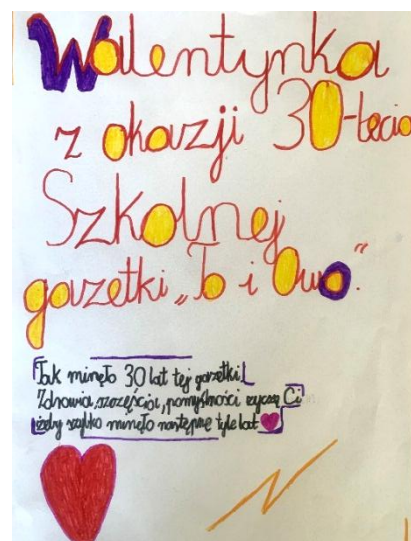 Walentynka
z okazji 30-lecia
Szkolnej
gazetki „To i Owo”.
Tak minęło 30 lat tej gazetki!
Zdrowia, szczęścia, pomyślności życzę Ci
żeby szybko minęło następne tyle lat